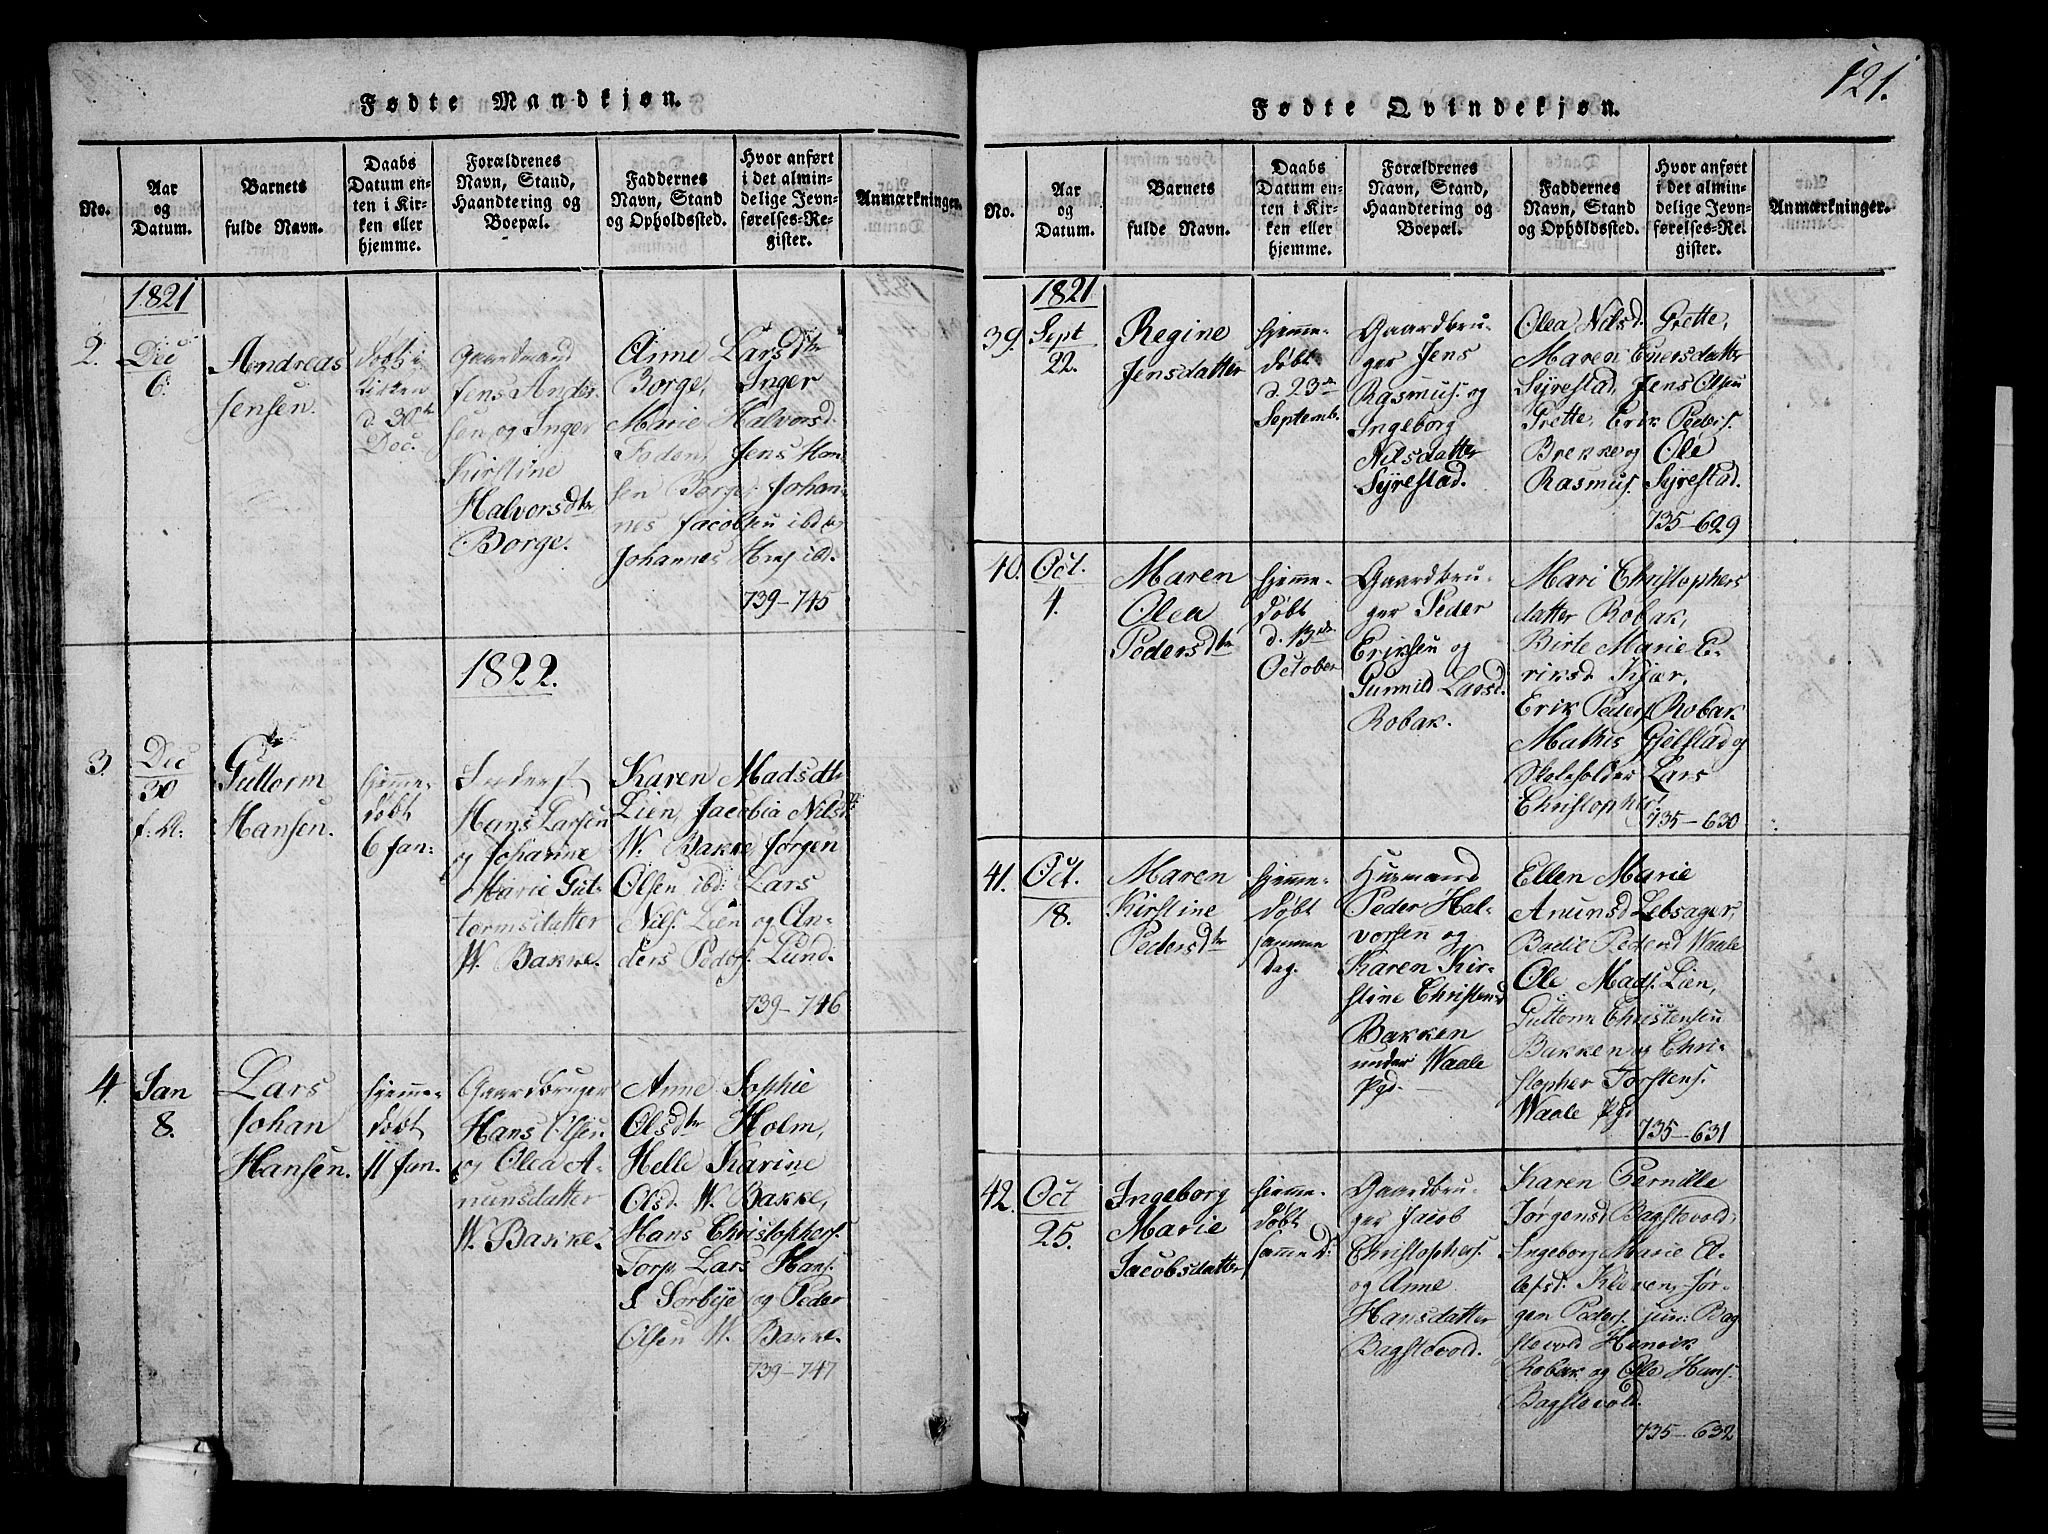 Fødte Mandkjøn.
No.
Aar
og
Datum.
Barnets
fulde Navn.
Daabs
Datum en-
ten i Kir-
ken eller
hjemme.
Forældrenes
Navn, Stand,
Haandtering og
Boepæl.
Faddernes
Navn, Stand
og Opholdssted.
Hvor anført
i det almin-
delige Jevn-
førelses-Re-
gister.
Anmærkninger.
1821
2.
Dec
6.
Andreas
Jensen.
døbt i
Kirken
d. 30te
Dec.
Gaardmand
Jens Ander-
sen og Inger
Kirstine
Halvorsdtr
Borge.
Anne Larsdtr
Borge, Inger
Marie Halvorsd.
Foden, Jens Han-
sen Borge, Johan-
nes Jacobsen ibd og
Johannes ibd.
739–745
1822.
3.
Dec
30
f: A:
Guttorm
Hansen.
hjemme-
døbt
6 Jan:
Inderst
Hans Larsen
og Johanne
Marie Gut-
tormsdatter
W. Bakke.
Karen Madsdtr
Lien, Jacobia Nilsd
W. Bakke, Jørgen
Olsen ibd: Lars
Nils. Lien og An-
ders Peders. Lund.
739–746
4.
Jan
8.
Lars
Johan
Hansen.
hjemme-
døbt
11 Jan.
Gaardbruger
Hans Olsen
og Olea A-
nunsdatter
W. Bakke.
Anne Sophie
Olsdtr Holm,
Helle Karine
Olsd. W. Bakke,
Hans Christophers.
Torp Lars Hans.
S Sorbye og Peder
Olsen W. Bakke.
739–747
121.
Fødte Qvindekjøn.
No.
Aar
og
Datum.
Barnets
fulde Navn.
Daabs
Datum en-
ten i Kir-
ken eller
hjemme.
Forældrenes
Navn, Stand,
Haandtering og
Boepæl.
Faddernes
Navn, Stand
og Opholdssted.
Hvor anført
i det almin-
delige Jevn-
førelses-Re-
gister.
Anmærkninger.
1821
39.
Sept
22.
Regine
Jensdatter
hjemme-
døbt
d. 23de
Septemb.
Gaardbru-
ger Jens
Rasmus. og
Ingeborg
Nilsdatter
Syrestad.
Olea Nilsd. Grette,
Maren Enersdatter
Syrestad, Jens Olsen
Grette, Erik Peders.
Brekke og Ole
Rasmus. Syrestad.
735–629
40.
Oct.
4.
Maren
Olea
Pedersdtr
hjemme-
døbt
d. 13de
October
Gaardbru-
ger Peder
Eriksen og
Gunnild Larsd.
Robak.
Mari Christophers
datter Robak,
Birte Marie E-
riksd Kjær,
Erik Peders. Robak
Mathis Fjelstad og
Skoleholder Lars
Christophers.
735–630
41.
Oct.
18.
Maren
Kirstine
Pedersdtr
hjemme-
døbt
samme
Dag.
Husmand
Peder Hal-
vorsen og
Karen Kir-
stine Christensd
Bakken
under Waale
Pgd.
Ellen Marie
Anunsd Lebsager,
Bodil Pedersd Waale
Ole Mads. Lien,
Guttorm Christensen
Bakken og Chri-
stopher Torstens.
Waale Pgd
735–631
42.
Oct
25.
Ingeborg
Marie
Jacobsdatter
hjemme-
døbt
samme D:
Gaardbru-
ger Jacob
Christophers.
og Anne
Hansdatter
Bagstevold.
Karen Pernille
Jørgensd Bagstevold,
Ingeborg Marie O-
lefsd: Kleven, Jør-
gen Peders. jun: Bag
stevold Henrik
Robak og Ole Hans.
Bagstevold.
735–632